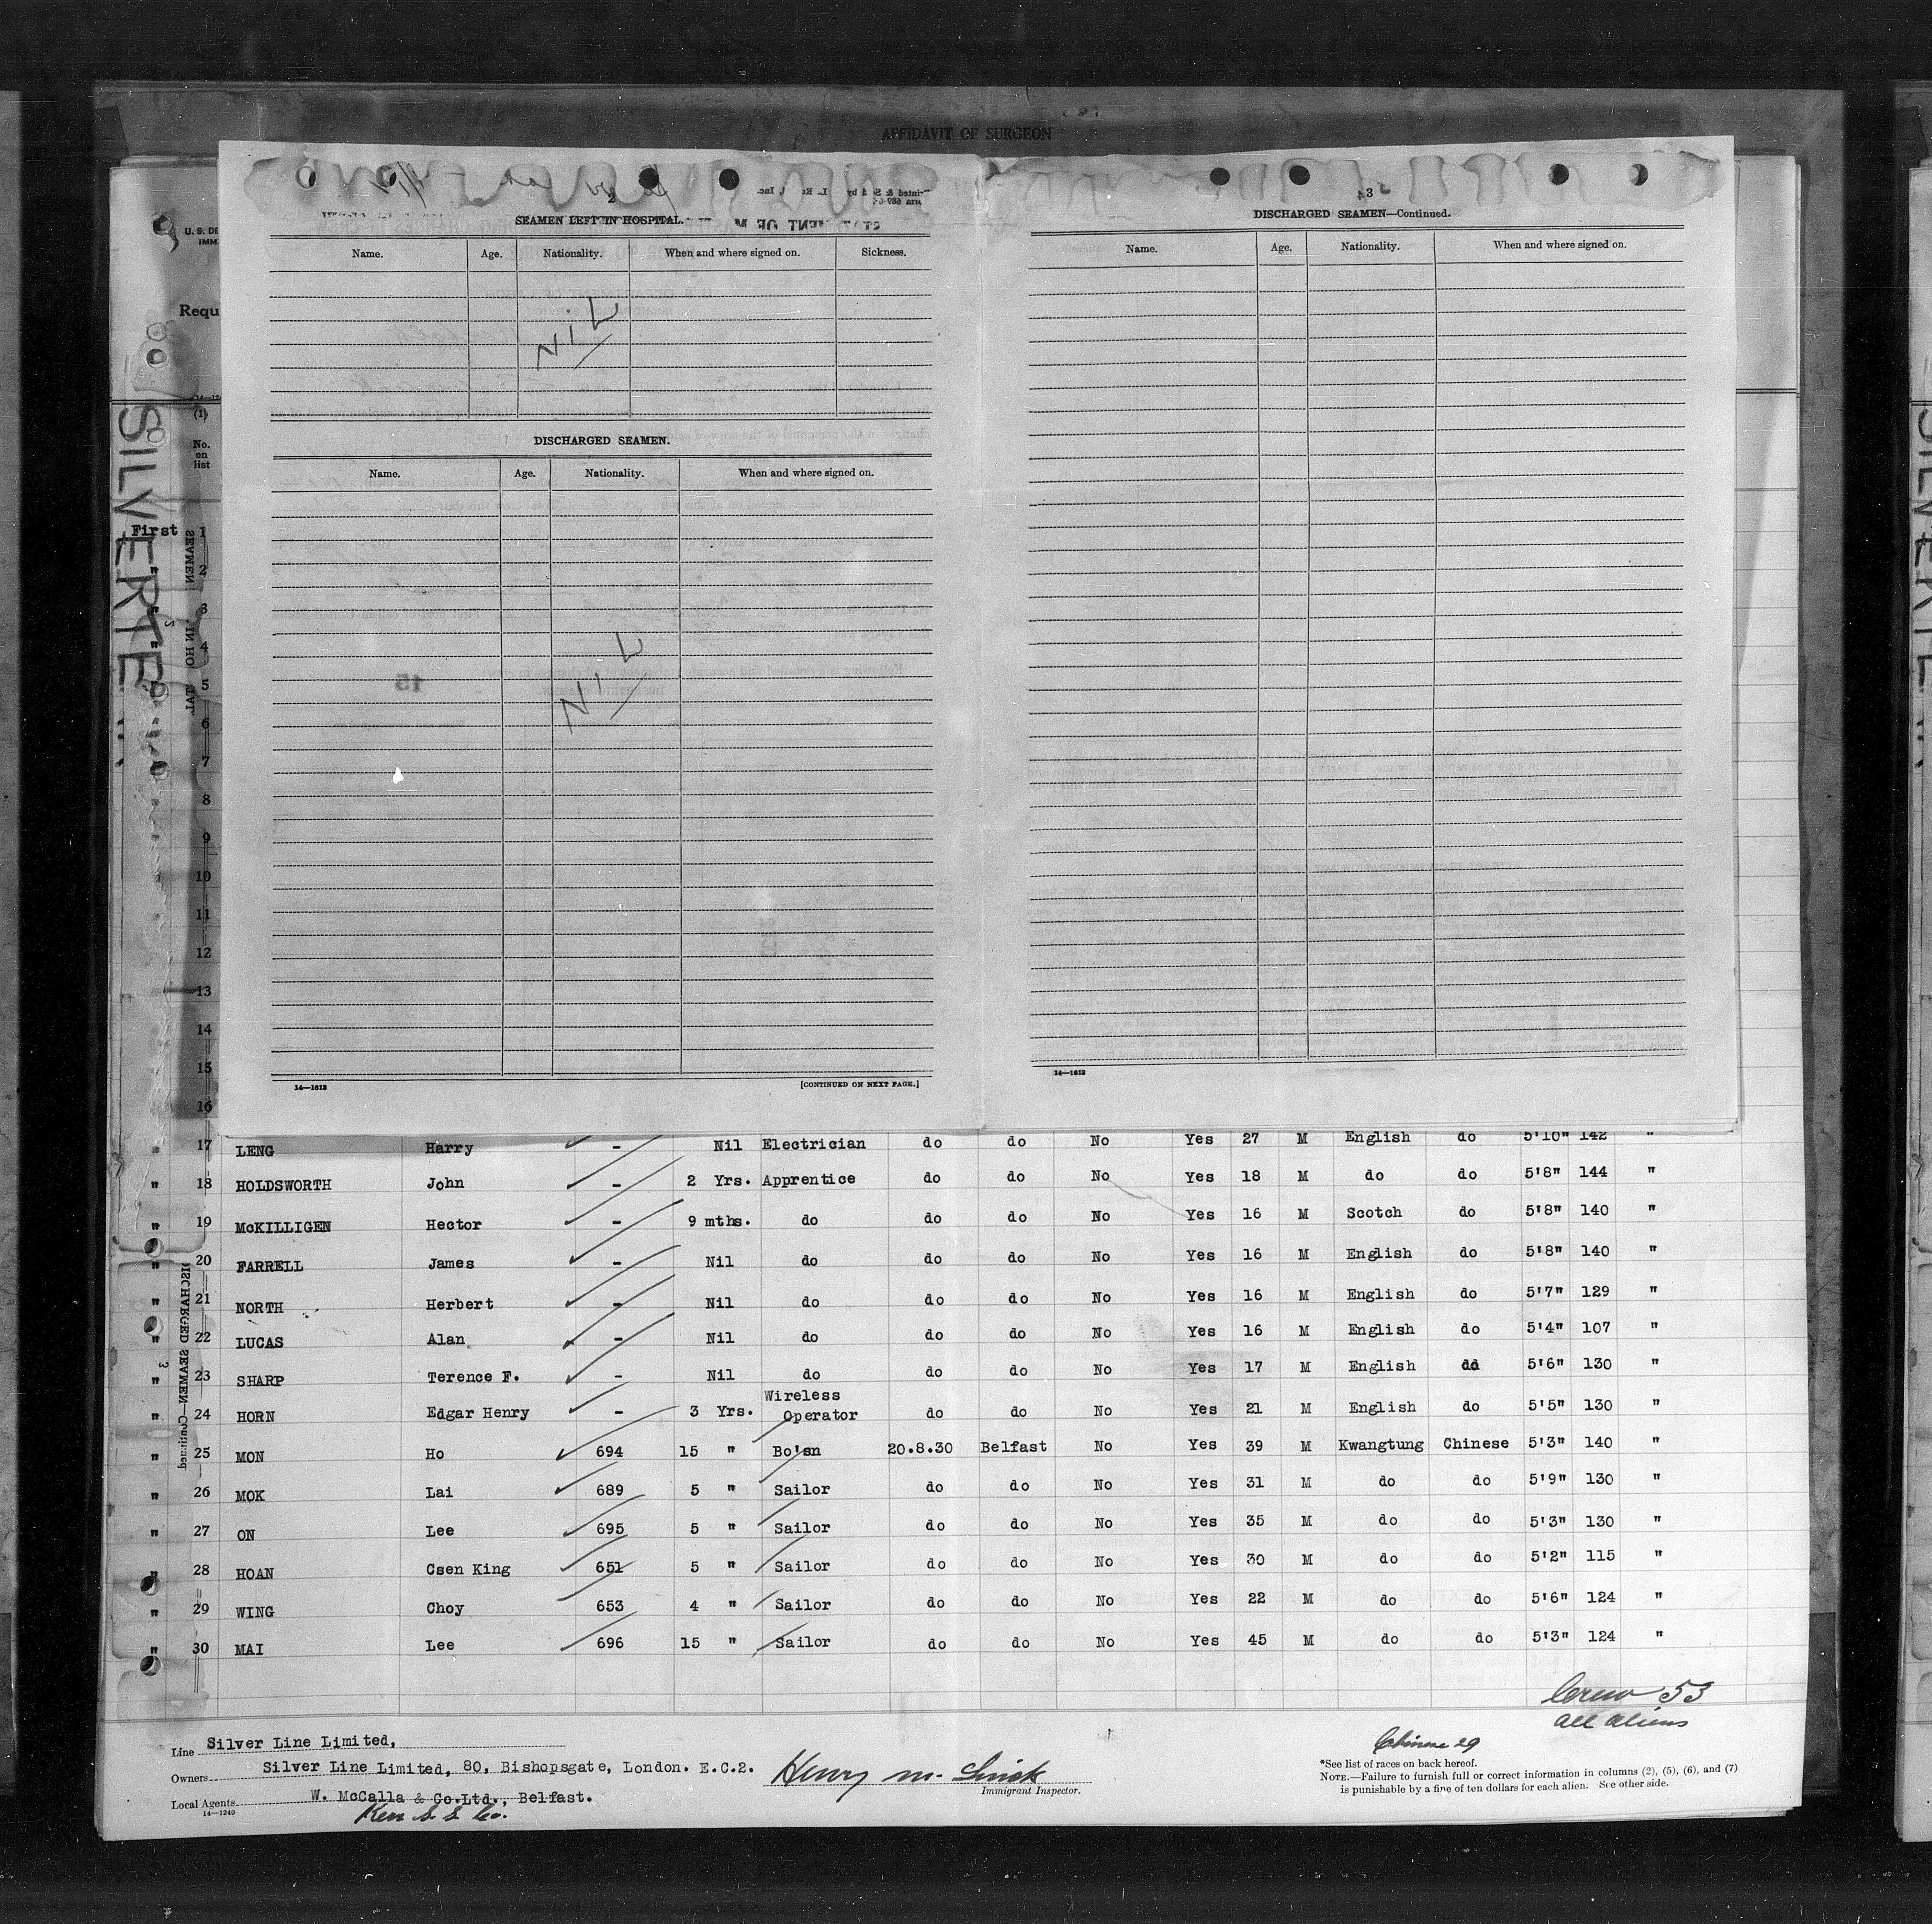 AFFIDAVIT OF SURGEON
2
SEAMEN LEFT IN HOSPITAL.
Name. Age. Nationality. When and where signed on. Sickness.
NiL
DISCHARGED SEAMEN.
Name. Age. Nationality. When and where signed on.
NiL
14—1613 [CONTINUED ON NEXT PAGE.]
3
DISCHARGED SEAMEN—Continued.
Name. Age. Nationality. When and where signed on.
14—1613
U. S. DE
IMM
Requ
(1)
No. on list
SILVERTE
SEAMEN
First 1
" 2
" 3
" 4
" 5
6
7
8
9
10
11
12
13
14
15
16
DISCHARGED SEAMEN—Continued
3
" 17 LENG Harry - Nil Electrician do do No Yes 27 M English do 5'10" 142 "
" 18 HOLDSWORTH John - 2 Yrs. Apprentice do do No Yes 18 M do do 5'8" 144 "
" 19 McKILLIGEN Hector - 9 mths. do do do No Yes 16 M Scotch do 5'8" 140 "
" 20 FARRELL James - Nil do do do No Yes 16 M English do 5'8" 140 "
" 21 NORTH Herbert - Nil do do do No Yes 16 M English do 5'7" 129 "
" 22 LUCAS Alan - Nil do do do No Yes 16 M English do 5'4" 107 "
" 23 SHARP Terence F. - Nil do do do No Yes 17 M English do 5'6" 130 "
" 24 HORN Edgar Henry - 3 Yrs. Wireless Operator do do No Yes 21 M English do 5'5" 130 "
" 25 MON Ho 694 15 " Bo'sn 20.8.30 Belfast No Yes 39 M Kwangtung Chinese 5'3" 140 "
" 26 MOK Lai 689 5 " Sailor do do No Yes 31 M do do 5'9" 130 "
" 27 ON Lee 695 5 " Sailor do do No Yes 35 M do do 5'3" 130 "
" 28 HOAN Csen King 651 5 " Sailor do do No Yes 30 M do do 5'2" 115 "
" 29 WING Choy 653 4 " Sailor do do No Yes 22 M do do 5'6" 124 "
" 30 MAI Lee 696 15 " Sailor do do No Yes 45 M do do 5'3" 124 "
Crew 53
all aliens
Chinese 29
Line Silver Line Limited,
Owners Silver Line Limited, 80, Bishopsgate, London. E.C.2.
Local Agents W. McCalla & Co.Ltd., Belfast.
14—1240
Kerr S. S. Co.
Henry M.
Immigrant Inspector.
*See list of races on back hereof.
NOTE.—Failure to furnish full or correct information in columns (2), (5), (6), and (7)
is punishable by a fine of ten dollars for each alien. See other side.